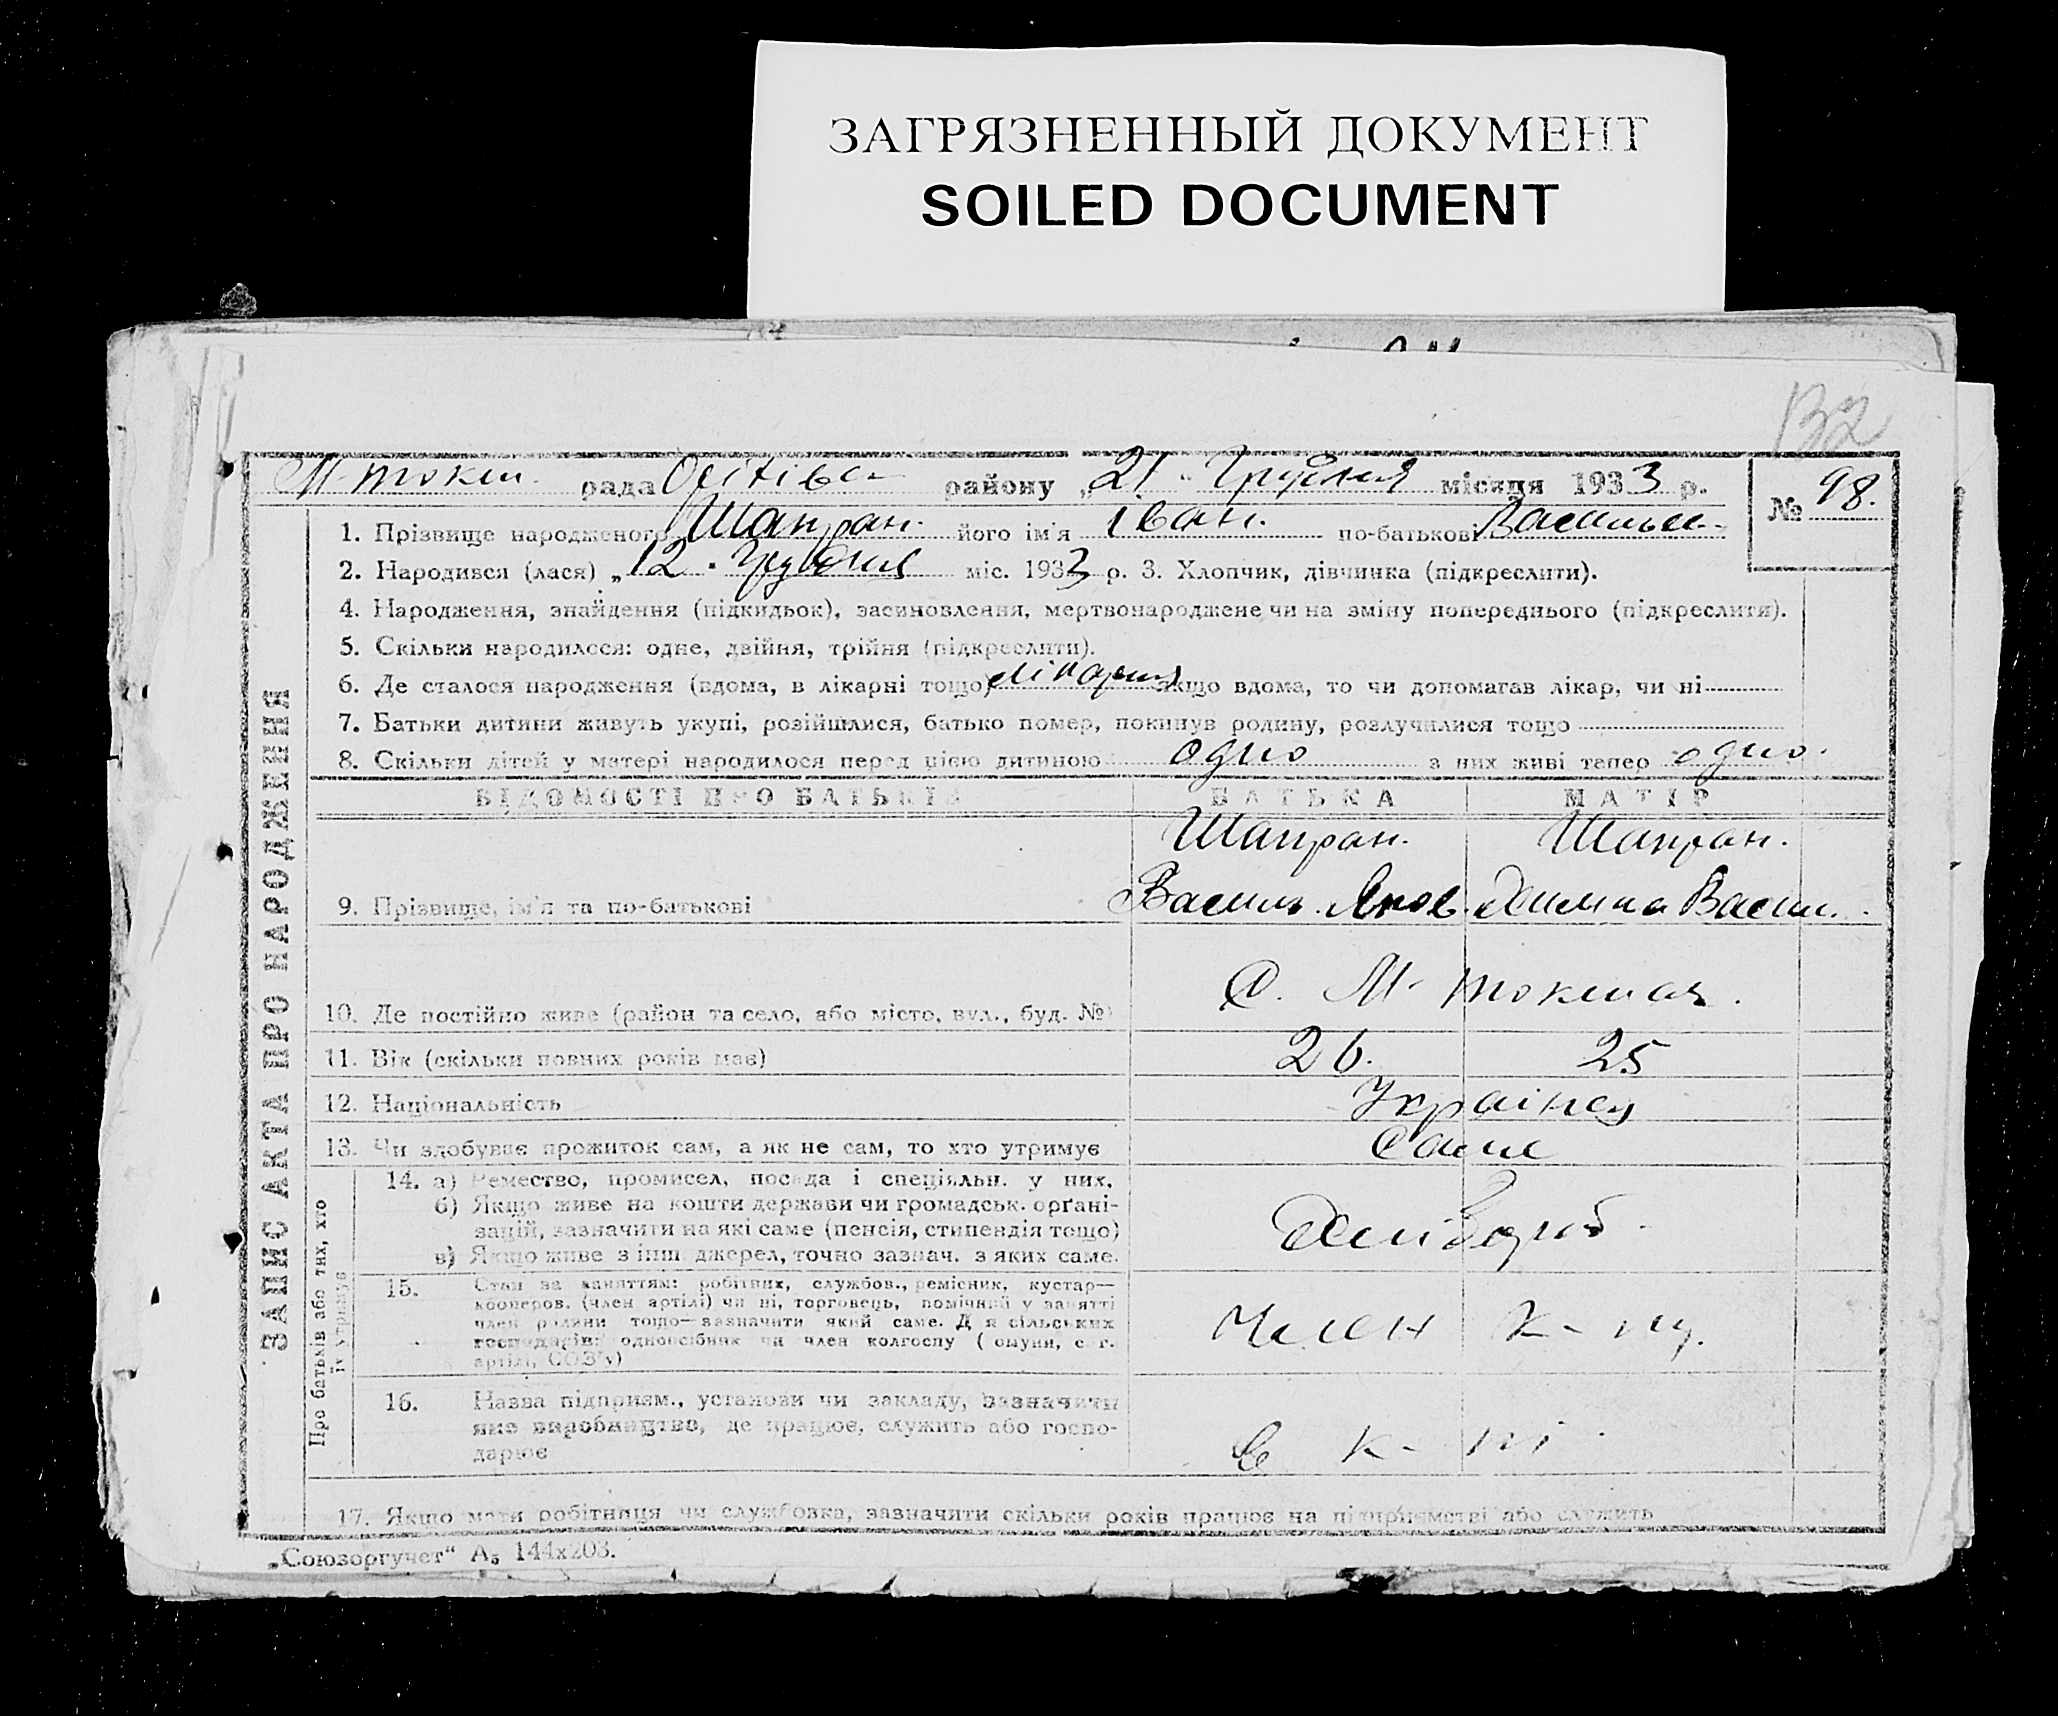 ЗАГРЯЗНЕННЫЙ ДОКУМЕНТ
SOILED DOCUMENT
132
М-токм. рада Оріхівськ району „21" Грудня місяця 1933 р.
№ 98.
1. Прізвище народженого Шапран. його ім'я Іван. по-батькові Васильев.
2. Народився (лася) „12" Грудня міс. 1933 р. 3. Хлопчик, дівчинка (підкреслити).
4. Народження, знайдення (підкидьок), засиновлення, мертвонароджене чи на зміну попереднього (підкреслити).
5. Скільки народилося: одне, двійня, трійня (підкреслити).
6. Де сталося народження (вдома, в лікарні тощо) лікарня якщо вдома, то чи допомагав лікар, чи ні
7. Батьки дитини живуть укупі, розійшлися, батько помер, покинув родину, розлучилися тощо
8. Скільки дітей у матері народилося перед цією дитиною одно з них живі тепер одно.
ЗАПИС АКТА ПРО НАРОДЖЕННЯ
ВІДОМОСТІ ПРО БАТЬКІВ БАТЬКА МАТІР
Шапран. Шапран.
9. Прізвище, ім'я та по-батькові Василь Яков. Химка Васил.
10. Де постійно живе (район та село, або місто, вул., буд. №) С. М-токмач.
11. Вік (скільки повних років має) 26. 25
12. Національність Українец
13. Чи здобуває прожиток сам, а як не сам, то хто утримує Саме
Про батьків або тих, хто їх утримує
14. а) Ремество, промисел, посада і спеціяльн. у них.
б) Якщо живе на кошти держави чи громадськ. орґані-
зацій, зазначити на які саме (пенсія, стипендія тощо)
в) Якщо живе з інш джерел, точно зазнач. з яких саме.
Хлібороб.
15. Стан за заняттям: робітник, службов., ремісник, кустар—
кооперов. (член артілі) чи ні, торговець, помічний у занятті
член родини тощо—зазначити який саме. Для сільських
господарів: одноосібник чи член колгоспу (комуни, с.-г.
артілі, СОЗ'у)
Член к-пу.
16. Назва підприєм., установи чи закладу, зазначити
яке виробництво, де працює, служить або госпо-
дарює
в к-пі.
17. Якщо мати робітниця чи службовка, зазначити скільки років працює на підприємстві або служить
„Союзоргучет" А₅ 144х203.